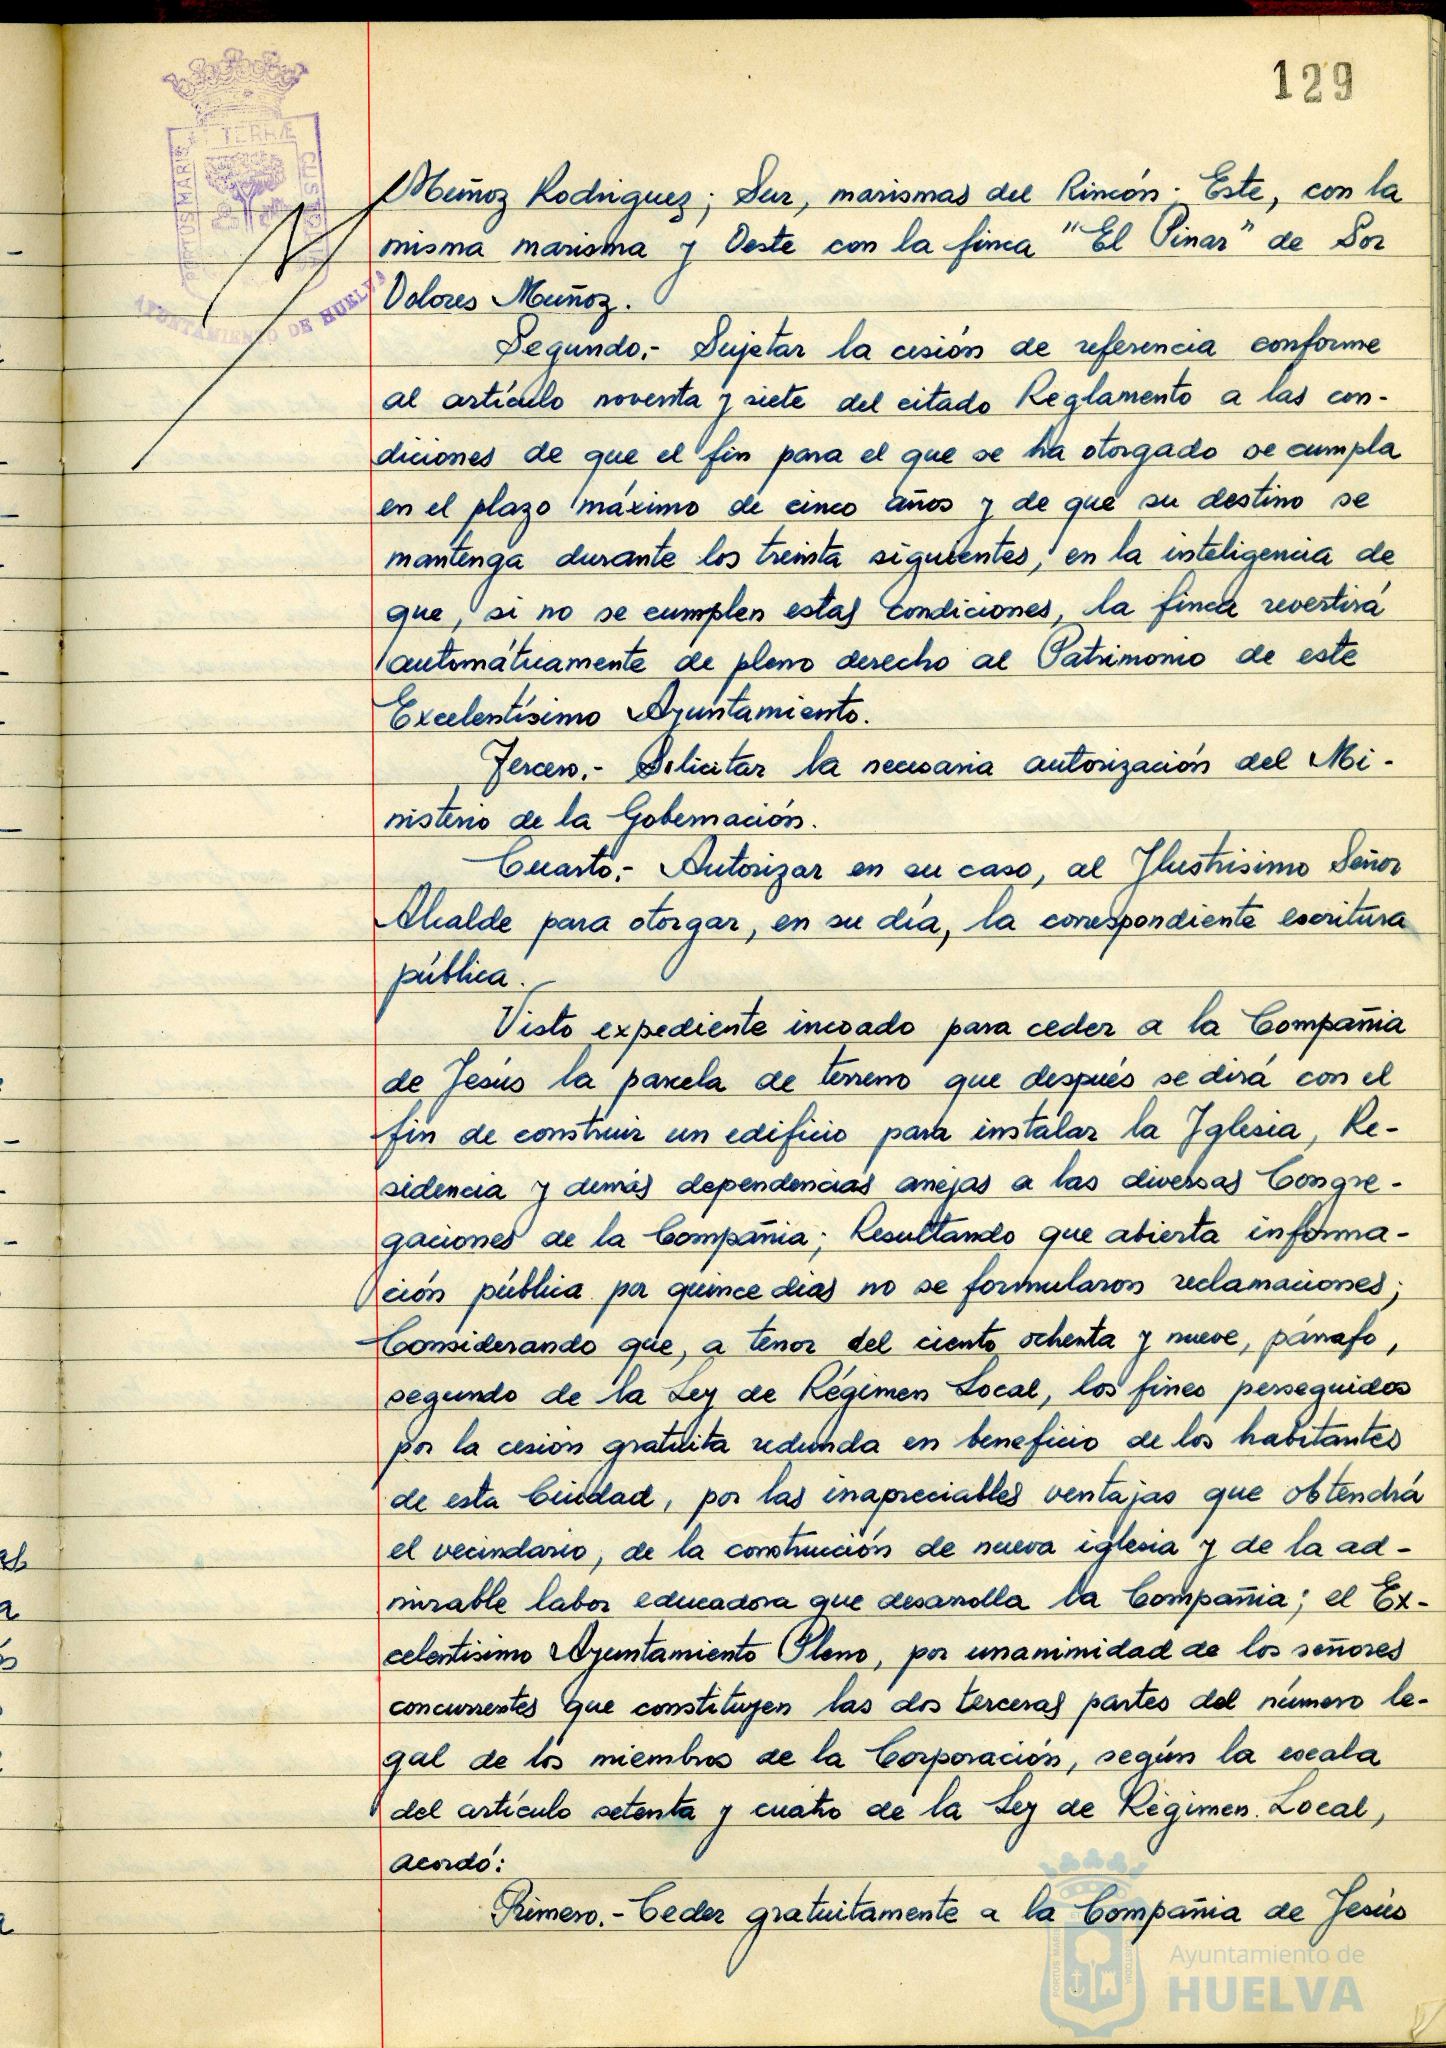 129
PORTUS MARIS ET TERRÆ CUSTODIA
AYUNTAMIENTO DE HUELVA
Muñoz Rodriguez; Sur, marismas del Rincón; Este, con la
misma marisma y Oeste con la finca "El Pinar" de Sor
Dolores Muñoz.
Segundo.- Sujetar la cesión de referencia conforme
al artículo noventa y siete del citado Reglamento a las con-
diciones de que el fin para el que se ha otorgado se cumpla
en el plazo máximo de cinco años y de que su destino se
mantenga durante los treinta siguientes, en la inteligencia de
que, si no se cumplen estas condiciones, la finca revertirá
automáticamente de pleno derecho al Patrimonio de este
Excelentísimo Ayuntamiento.
Tercero.- Solicitar la necesaria autorización del Mi-
nisterio de la Gobernación.
Cuarto.- Autorizar en su caso, al Ilustrisimo Señor
Alcalde para otorgar, en su día, la correspondiente escritura
pública.
Visto expediente incoado para ceder a la Compañia
de Jesús la parcela de terreno que después se dirá con el
fin de construir un edificio para instalar la Iglesia, Re-
sidencia y demás dependencias anejas a las diversas Congre-
gaciones de la Compañia; Resultando que abierta informa-
ción pública por quince dias no se formularon reclamaciones;
Considerando que, a tenor del ciento ochenta y nueve, párrafo,
segundo de la Ley de Régimen Local, los fines perseguidos
por la cesión gratuita redunda en beneficio de los habitantes
de esta Ciudad, por las inapreciables ventajas que obtendrá
el vecindario, de la construcción de nueva iglesia y de la ad-
mirable labor educadora que desarrolla la Compañia; el Ex-
celentisimo Ayuntamiento Pleno, por unanimidad de los señores
concurrentes que constituyen las dos terceras partes del número le-
gal de los miembros de la Corporación, según la escala
del artículo setenta y cuatro de la Ley de Régimen Local,
acordó:
Primero.- Ceder gratuitamente a la Compañia de Jesús
Ayuntamiento de
HUELVA